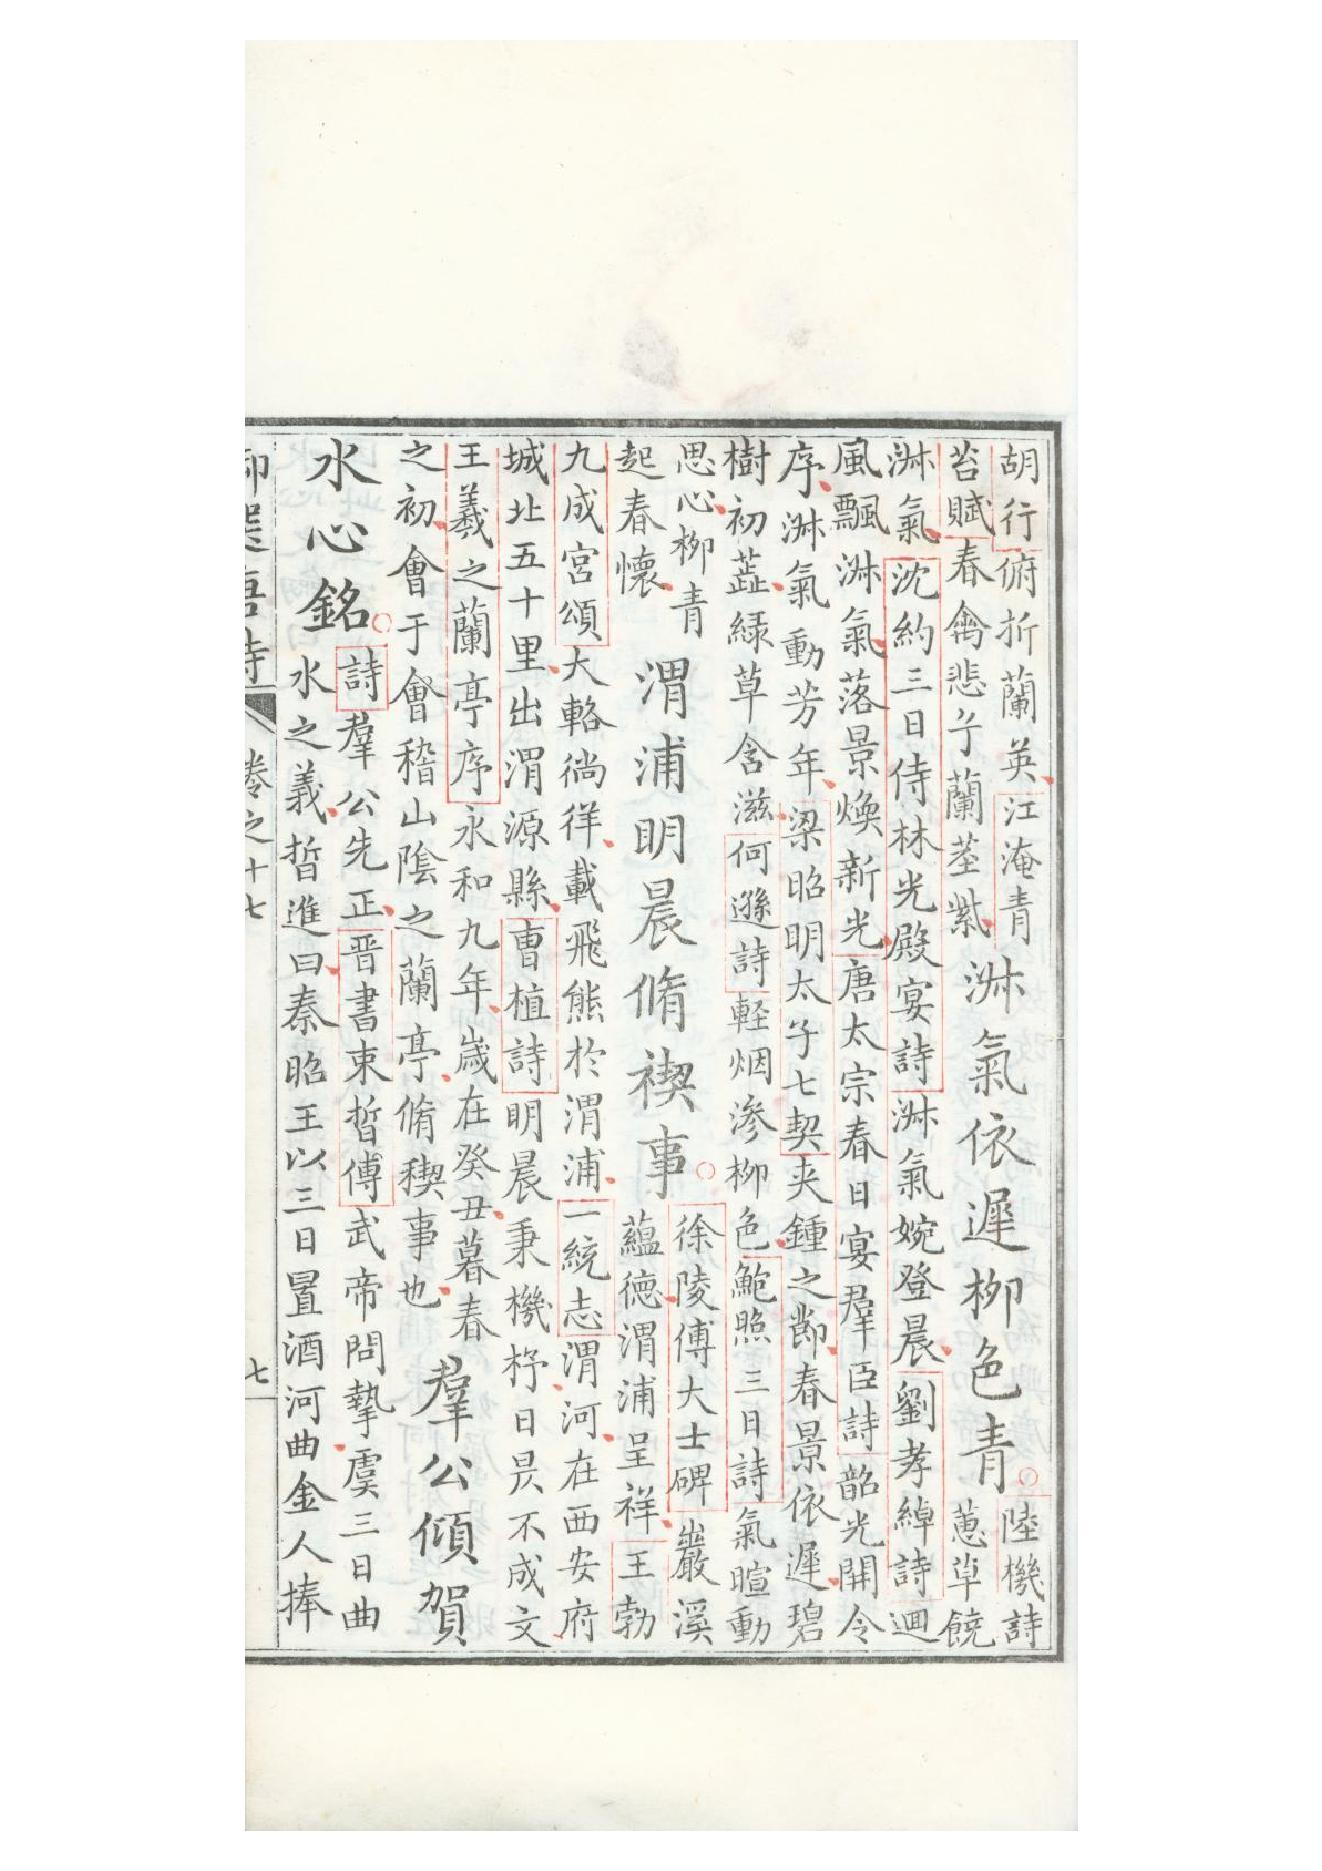 胡行俯折蘭英江淹青
苔賦春禽悲兮蘭莖紫
淑氣依遲柳色青
陸機詩
蕙草饒
淑氣沈約三日侍林光殿宴詩淑氣婉登晨劉孝綽詩迴
風飄淑氣落景煥新光唐太宗春日宴羣臣詩韶光開令
序淑氣動芳年梁昭明太子七契夾鍾之節春景依遲碧
樹初蘂綠草含滋何遜詩輕烟滲柳色鮑照三日詩氣暄動
思心柳青
起春懷
渭浦明晨脩禊事
徐陵傅大士碑巖溪
蘊德渭浦呈祥王勃
九成宮頌大輅徜徉載飛熊於渭浦一統志渭河在西安府
城北五十里出渭源縣曹植詩明晨秉機杼日昃不成文
王羲之蘭亭序永和九年歲在癸丑暮春
之初會于會稽山陰之蘭亭脩禊事也
羣公傾賀
水心銘
詩羣公先正晋書束晳傅武帝問摯虞三日曲
水之義晳進曰秦昭王以三日置酒河曲金人捧
御選唐詩 卷之十七 七